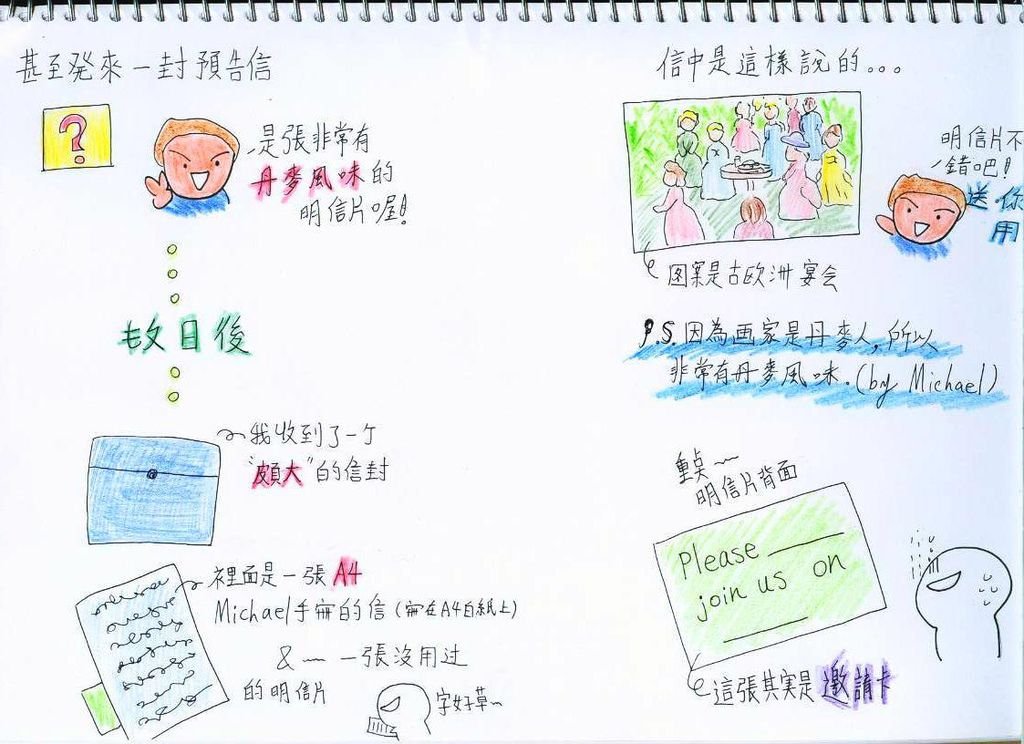 甚至発來一封預告信
?
是張非常有
丹麥風味的
明信片喔!
数日後
我收到了一个
"頗大"的信封
裡面是一張A4
Michael手寫的信(寫在A4白紙上)
& 一張沒用过
的明信片
字好草~
信中是這樣說的...
明信片不
錯吧!
送你
用
图案是古欧洲宴会
P.S.因為画家是丹麥人,所以
非常有丹麥風味.(by Michael)
重点~~
明信片背面
Please ____
join us on
____
這張其実是邀請卡